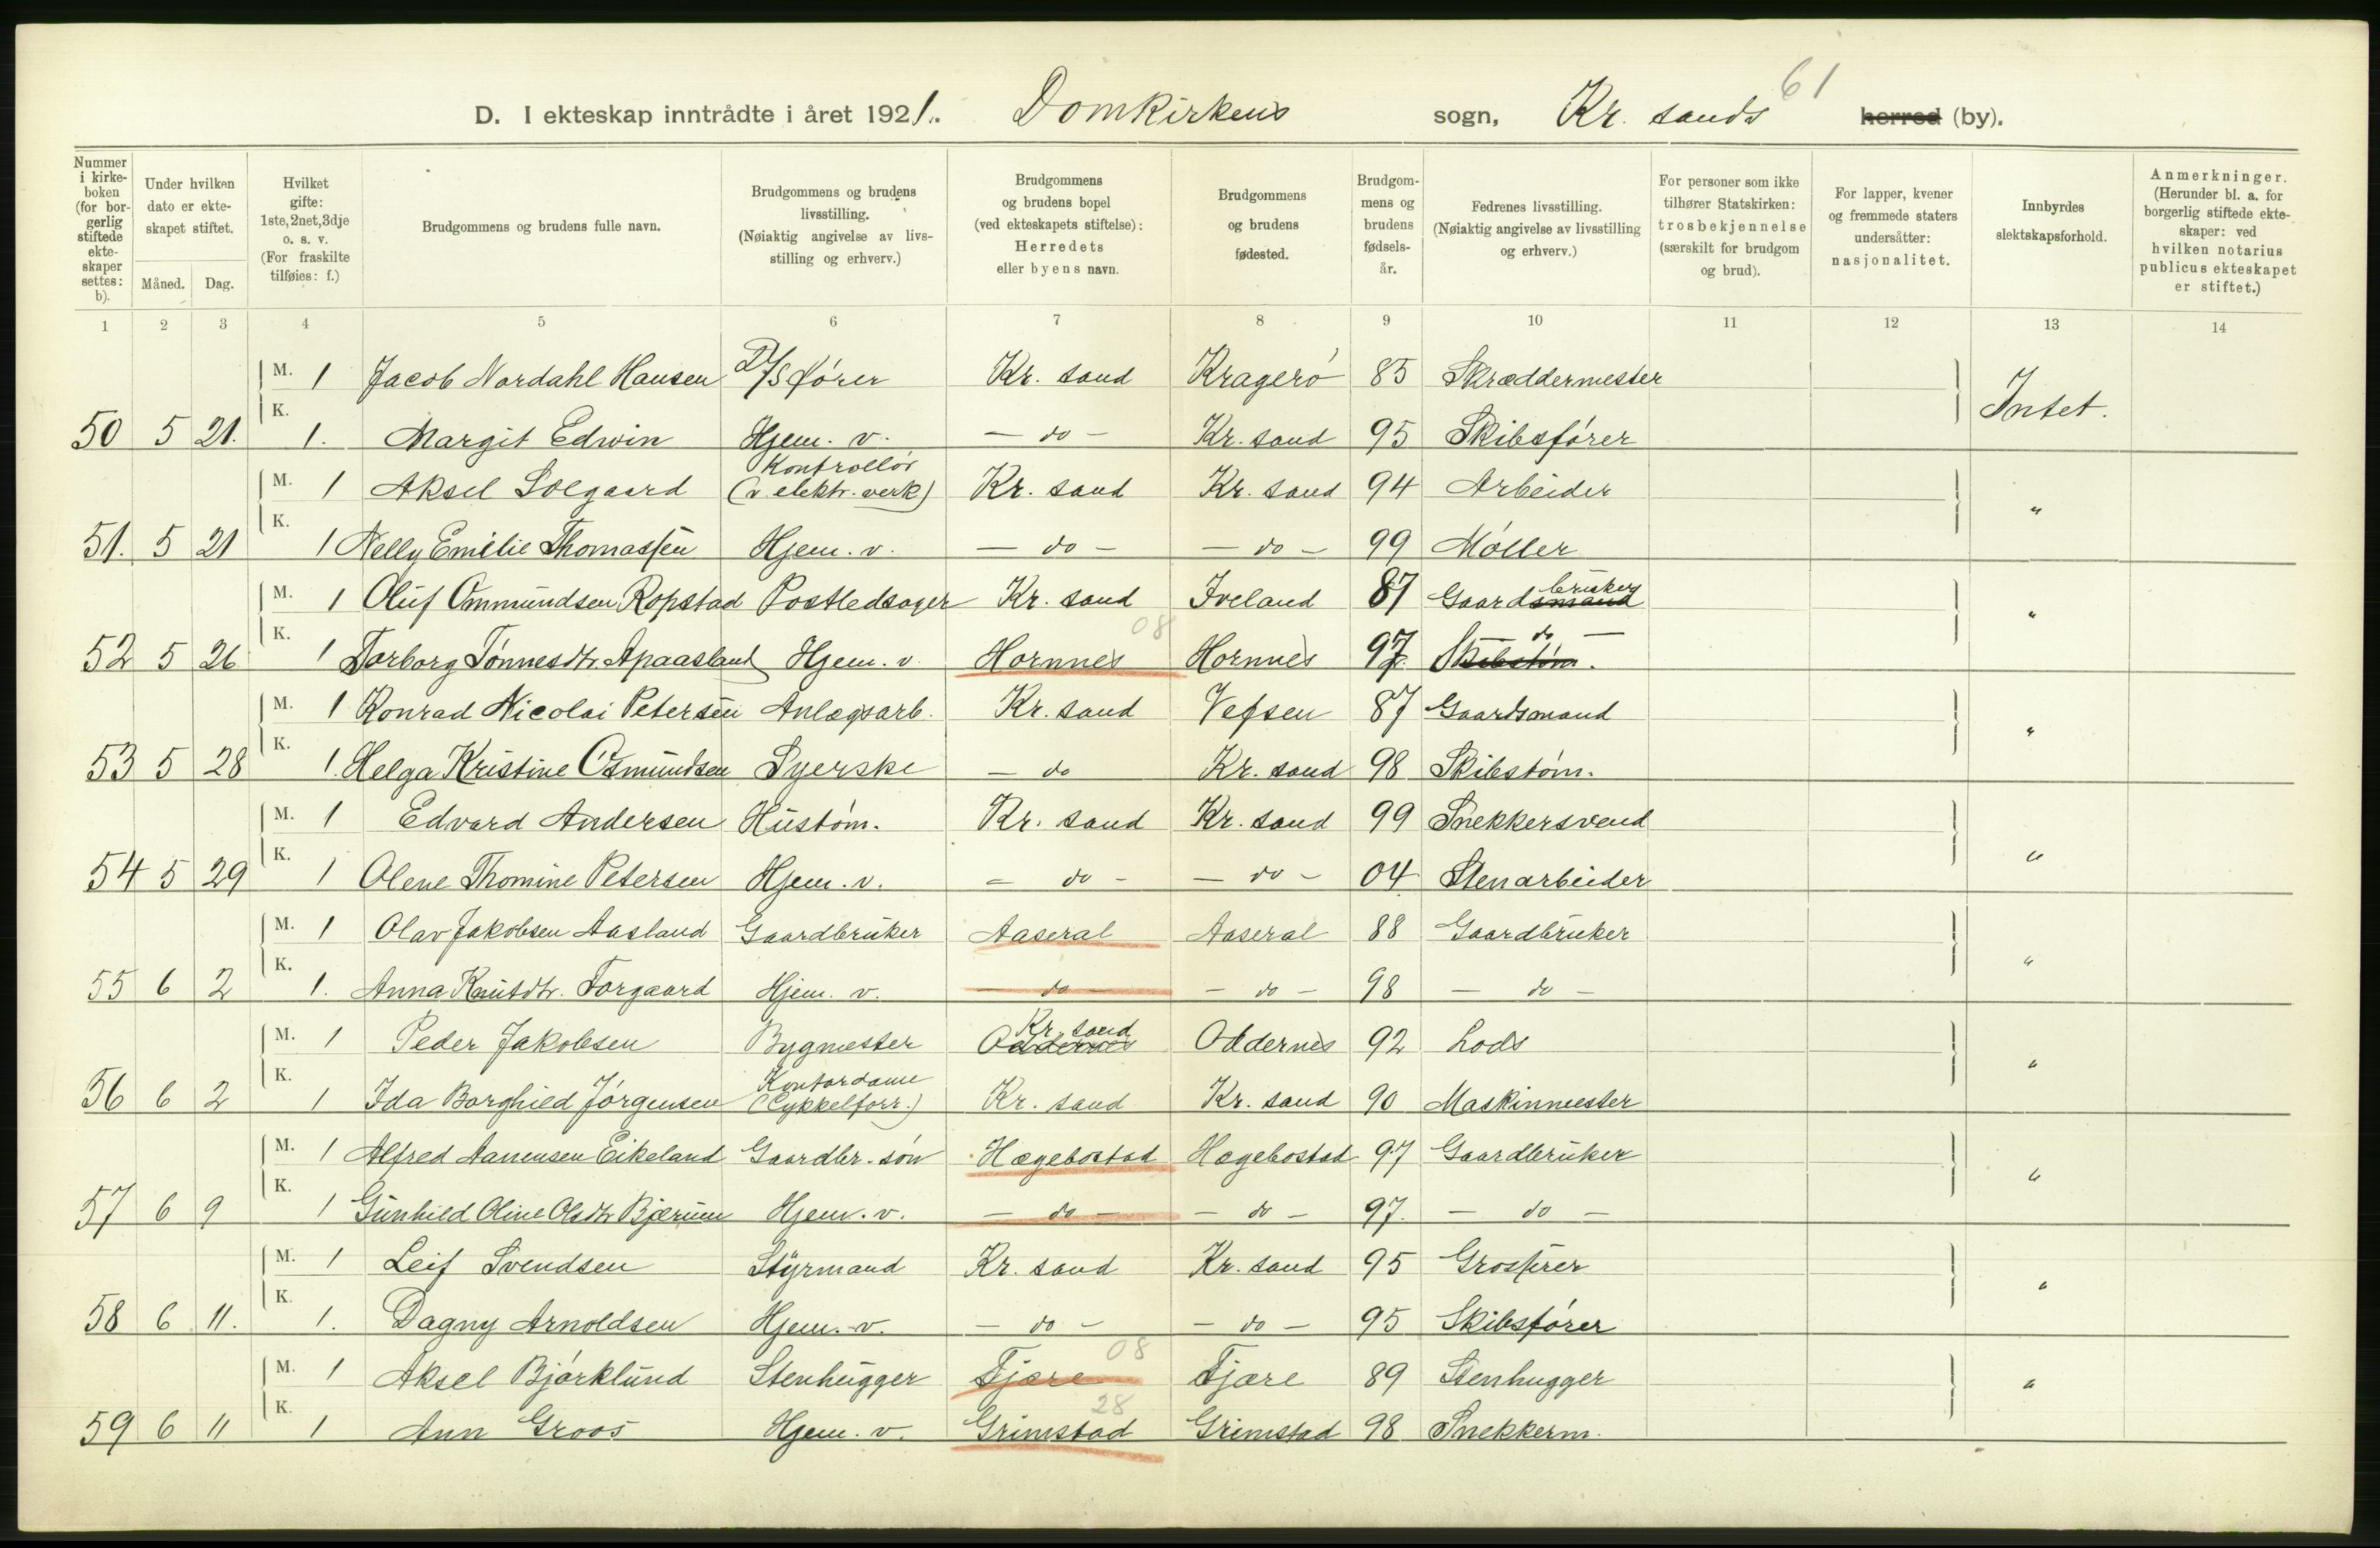 61
D. I ekteskap inntrådte i året 1921. Domkirkens sogn, Kr. sands herred (by).
Nummer i kirkeboken (for borgerlig stiftede ekteskaper settes: b).
Under hvilken dato er ekteskapet stiftet.
Måned. Dag.
Hvilket gifte: 1ste, 2net, 3dje o. s. v. (For fraskilte tilføies: f.)
Brudgommens og brudens fulle navn.
Brudgommens og brudens livsstilling. (Nøiaktig angivelse av livsstilling og erhverv.)
Brudgommens og brudens bopel (ved ekteskapets stiftelse): Herredets eller byens navn.
Brudgommens og brudens fødested.
Brudgommens og brudens fødselsår.
Fedrenes livsstilling. (Nøiaktig angivelse av livsstilling og erhverv.)
For personer som ikke tilhører Statskirken: trosbekjennelse (særskilt for brudgom og brud).
For lapper, kvener og fremmede staters undersåtter: nasjonalitet.
Innbyrdes slektskapsforhold.
Anmerkninger. (Herunder bl. a. for borgerlig stiftede ekteskaper: ved hvilken notarius publicus ekteskapet er stiftet.)
1 2 3 4 5 6 7 8 9 10 11 12 13 14
M. 1 Jacob Nordahl Hansen D/S fører Kr. sand Kragerø 85 Skræddermester
Intet.
50 5 21. K. 1. Margit Edwin Hjem. v. — do — Kr. sand 95 Skibsfører
M. 1 Aksel Solgaard Kontrollør (v. elektr. verk) Kr. sand Kr. sand 94 Arbeider
"
51. 5 21 K. 1 Nelly Emilie Thomassen Hjem. v. — do — — do — 99 Møller
M. 1 Oluf Ommundsen Ropstad Postledsager Kr. sand Iveland 87 Gaardsmand bruker
"
08
52 5 26 K. 1 Torborg Tønnesdtr. Apaasland Hjem. v. Hornnes Hornnes 97. Skibstøm. do —
M. 1 Konrad Nicolai Petersen Anlægsarb. Kr. sand Vefsen 87 Gaardsmand
"
53 5 28 K. 1. Helga Kristine Osmundsen Syerske — do Kr. sand 98 Skibstøm.
M. 1 Edvard Andersen Hustøm. Kr. sand Kr. sand 99 Snekkersvend
"
54 5 29 K. 1 Olene Thomine Petersen Hjem. v. — do — — do — 04 Stenarbeider
M. 1 Olav Jakobsen Aasland Gaardbruker Aaseral Aaseral 88 Gaardbruker
"
55 6 2 K. 1. Anna Knutdtr. Torgaard Hjem. v. — do — — do — 98 — do —
M. 1 Peder Jakobsen Bygmester Oddernes Kr. sand Oddernes 92 Lods
"
56 6 2 K. 1 Ida Borghild Jørgensen Kontordame (Cykkelforr.) Kr. sand Kr. sand 90 Maskinmester
M. 1 Alfred Aanensen Eikeland Gaardbr. søn Hægebostad Hægebostad 97 Gaardbruker
"
57 6 9 K. 1 Gunhild Oline Olsdtr Bjærum Hjem. v. — do — — do — 97. — do —
M. 1 Leif Svendsen Styrmand Kr. sand Kr. sand 95 Grosserer
"
58 6 11. K. 1. Dagny Arnoldsen Hjem. v. — do — — do — 95 Skibsfører
08
M. 1 Aksel Bjørklund Stenhugger Fjære Fjære 89 Stenhugger
"
28
59 6 11 K. 1 Ann Groos Hjem. v. Grimstad Grimstad 98 Snekkerm.